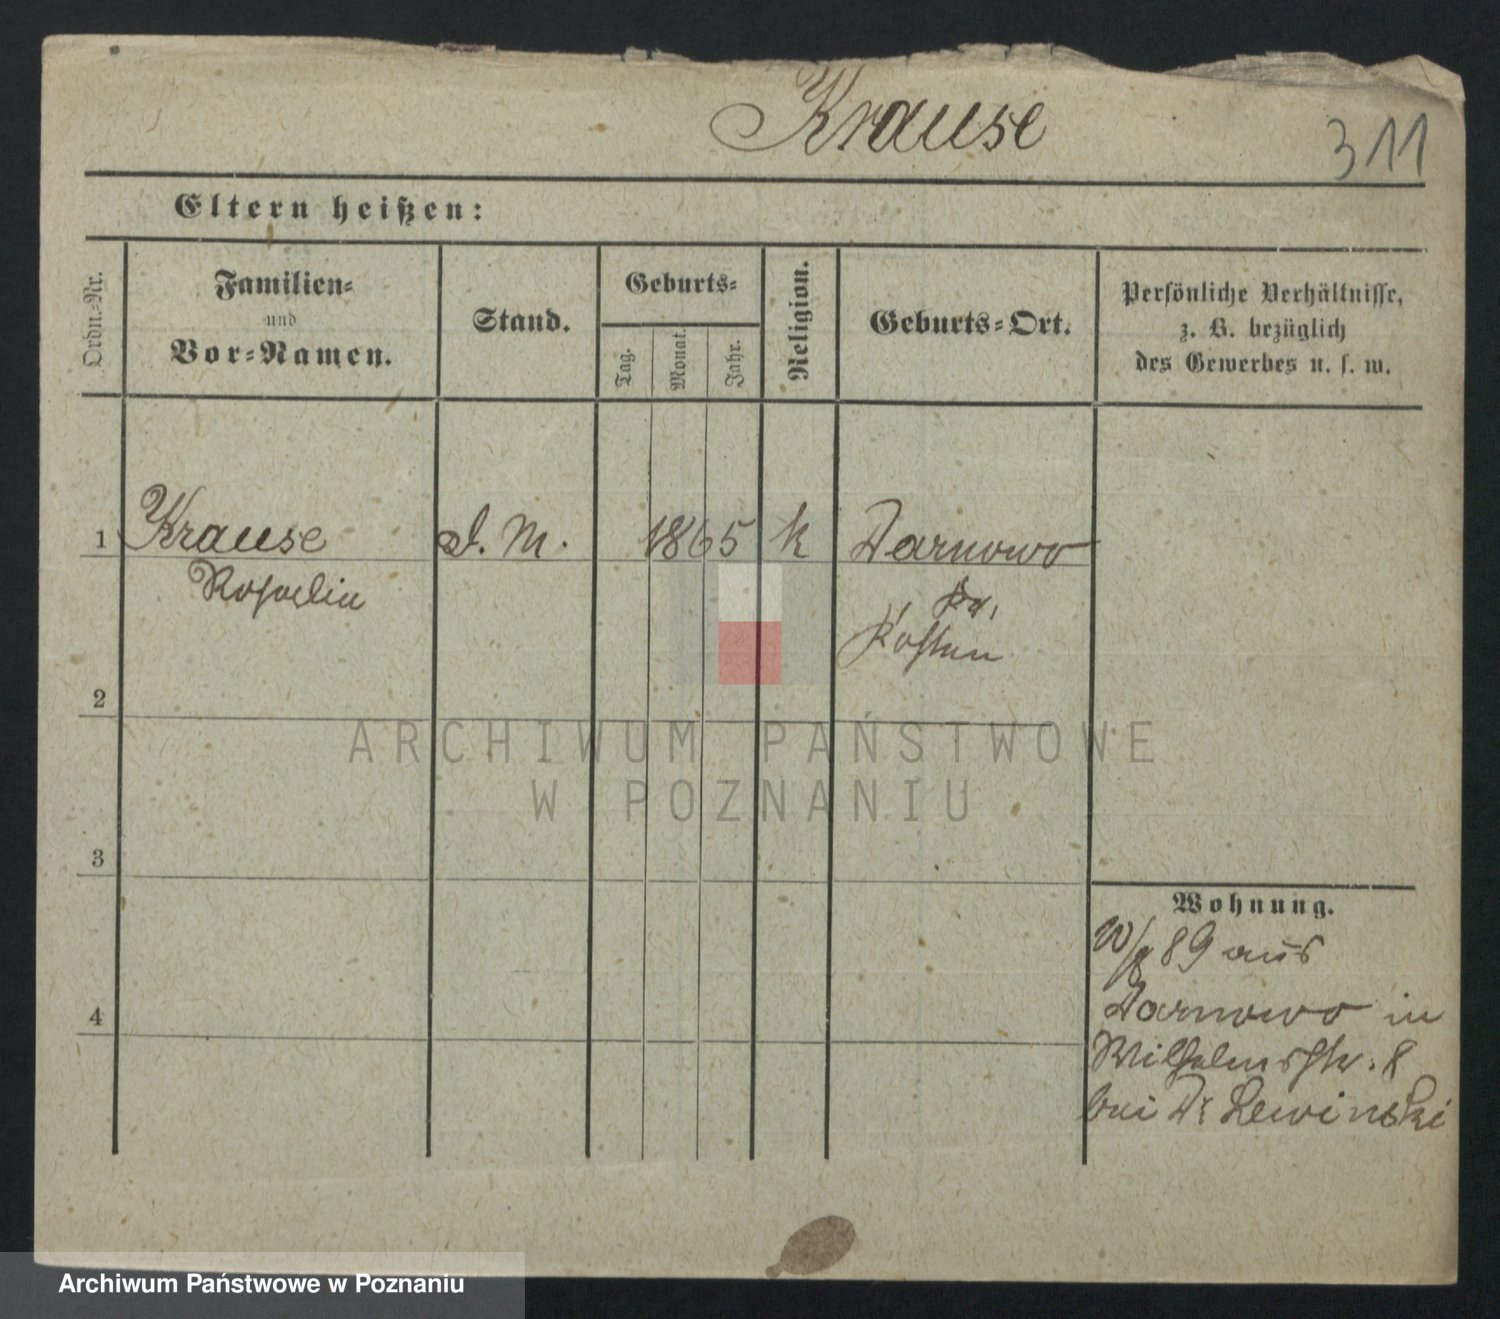 Krause
311
Eltern heißen:
Ordn.-Nr.
Familien-
und
Vor-Namen.
Stand.
Geburts-
Tag.
Monat.
Jahr.
Religion.
Geburts-Ort.
Persönliche Verhältnisse,
z. B. bezüglich
des Gewerbes u. s. w.
1 Krause D. M. 1865 k Darnowo
Rosalie
Kr.
Kosten
2
3
4
Wohnung.
10/8 89 aus
Darnowo in
Wilhelmsstr. 8
bei Dr Lewinski
ARCHIWUM PAŃSTWOWE
W POZNANIU
Archiwum Państwowe w Poznaniu